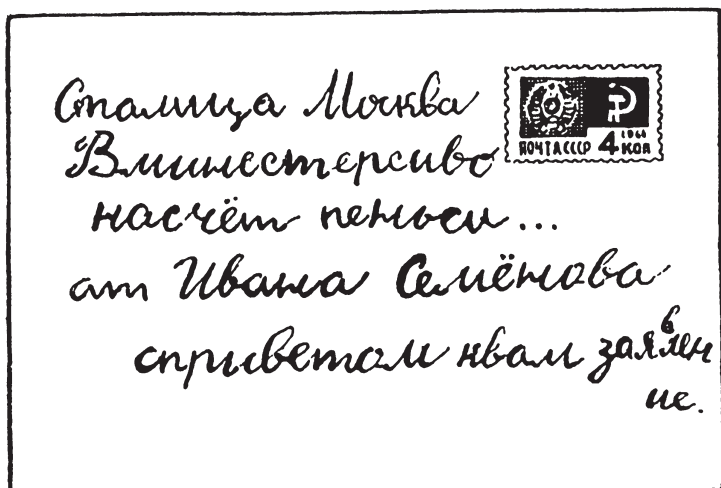 Сталица Москва
Вминестерсиво
насчёт пеньси...
ат Ивана Семёнова
сприветом квам заявлен
ие.
1966
ПОЧТА СССР 4 КОП